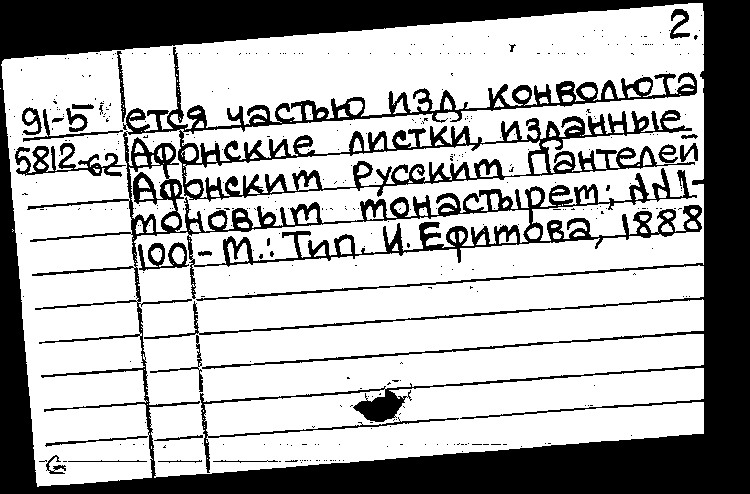 2.
91-5 ется частью изд. конволюта:
5812-62 Афонские листки, изданные
Афонским Русским Пантелей
моновым монастырем; №№1-
100.- М.: Тип. И. Ефимова, 1888